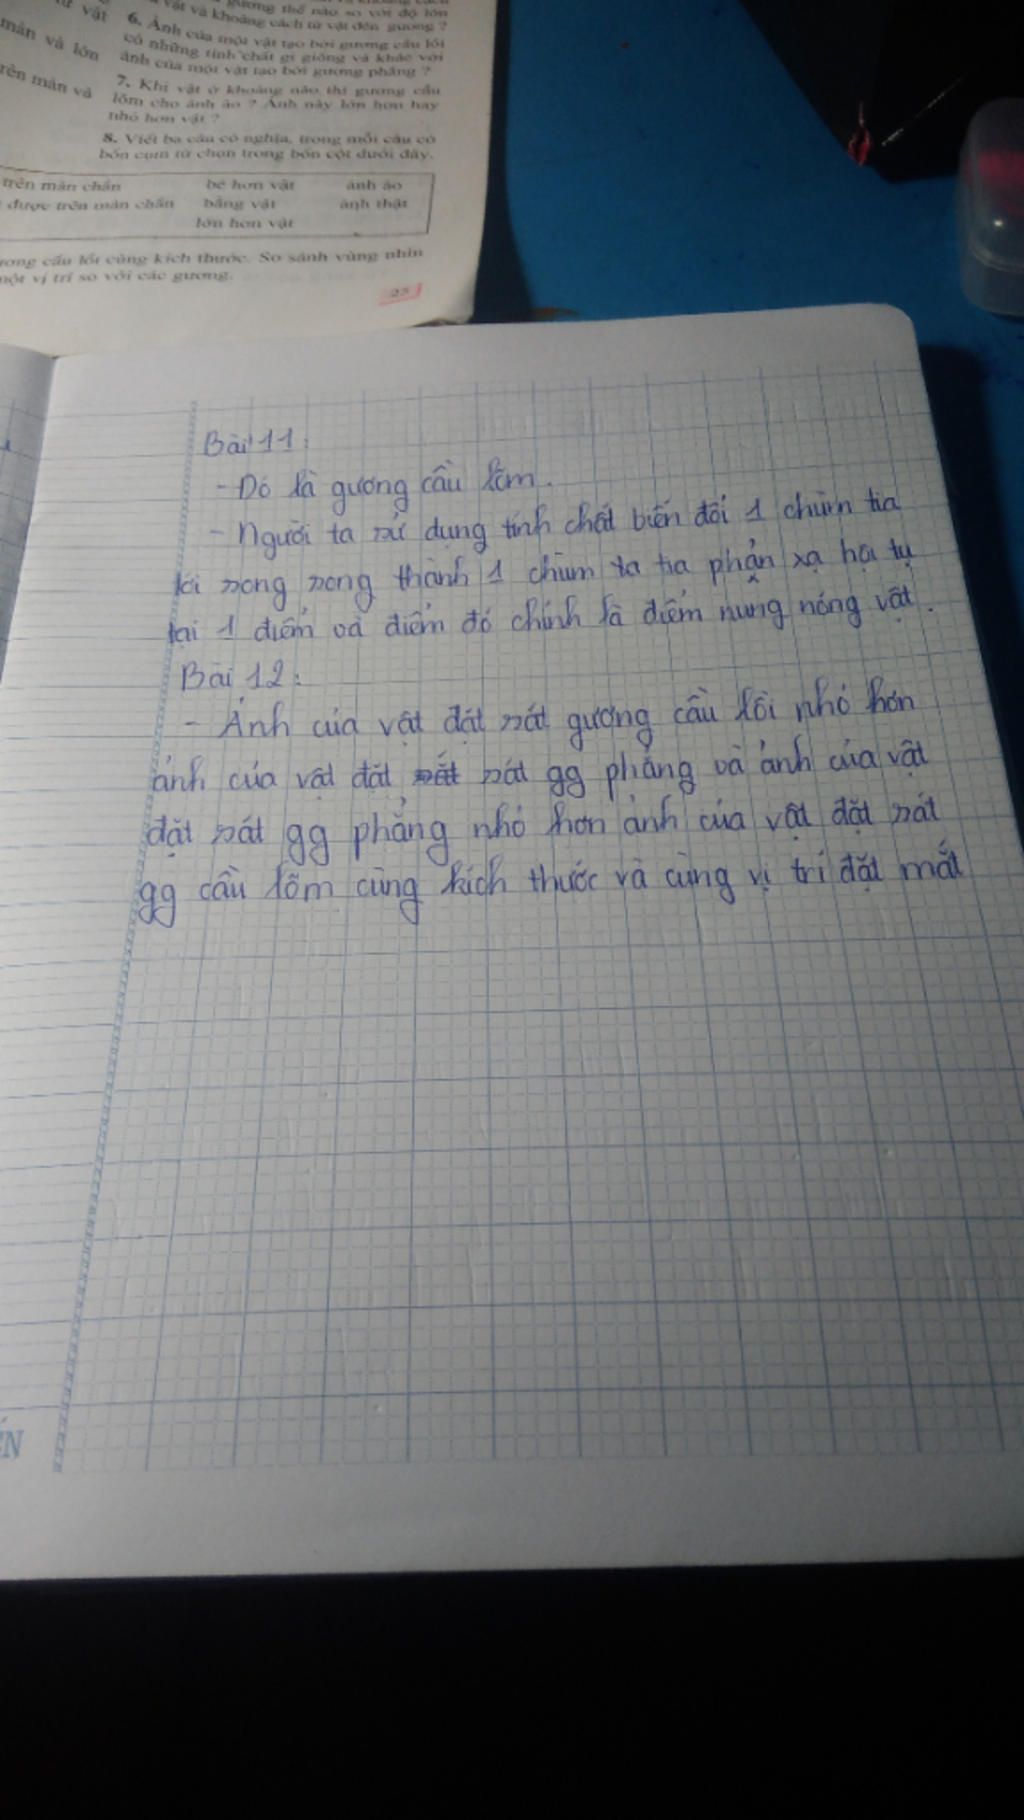 gương thế nào so với độ lớn
vật và khoảng cách từ vật đến gương ?
6. Ảnh của một vật tạo bởi gương cầu lồi
có những tính chất gì giống và khác với
ảnh của một vật tạo bởi gương phẳng ?
7. Khi vật ở khoảng nào thì gương cầu
lõm cho ảnh ảo ? Ảnh này lớn hơn hay
nhỏ hơn vật ?
8. Viết ba câu có nghĩa, trong mỗi câu có
bốn cụm từ chọn trong bốn cột dưới đây.
vật
màn và lớn
trên màn và
trên màn chắn bé hơn vật ảnh ảo
được trên màn chắn bằng vật ảnh thật
lớn hơn vật
gương cầu lồi cùng kích thước. So sánh vùng nhìn
một vị trí so với các gương.
25
Bài 11:
- Đó là gương cầu lõm.
- Người ta sử dụng tính chất biến đổi 1 chùm tia
tới song song thành 1 chùm ta tia phản xạ hội tụ
tại 1 điểm và điểm đó chính là điểm nung nóng vật.
Bài 12:
- Ảnh của vật đặt sát gương cầu lồi nhỏ hơn
ảnh của vật đặt sát gg phẳng và ảnh của vật
đặt sát gg phẳng nhỏ hơn ảnh của vật đặt sát
gg cầu lõm cùng kích thước và cùng vị trí đặt mắt